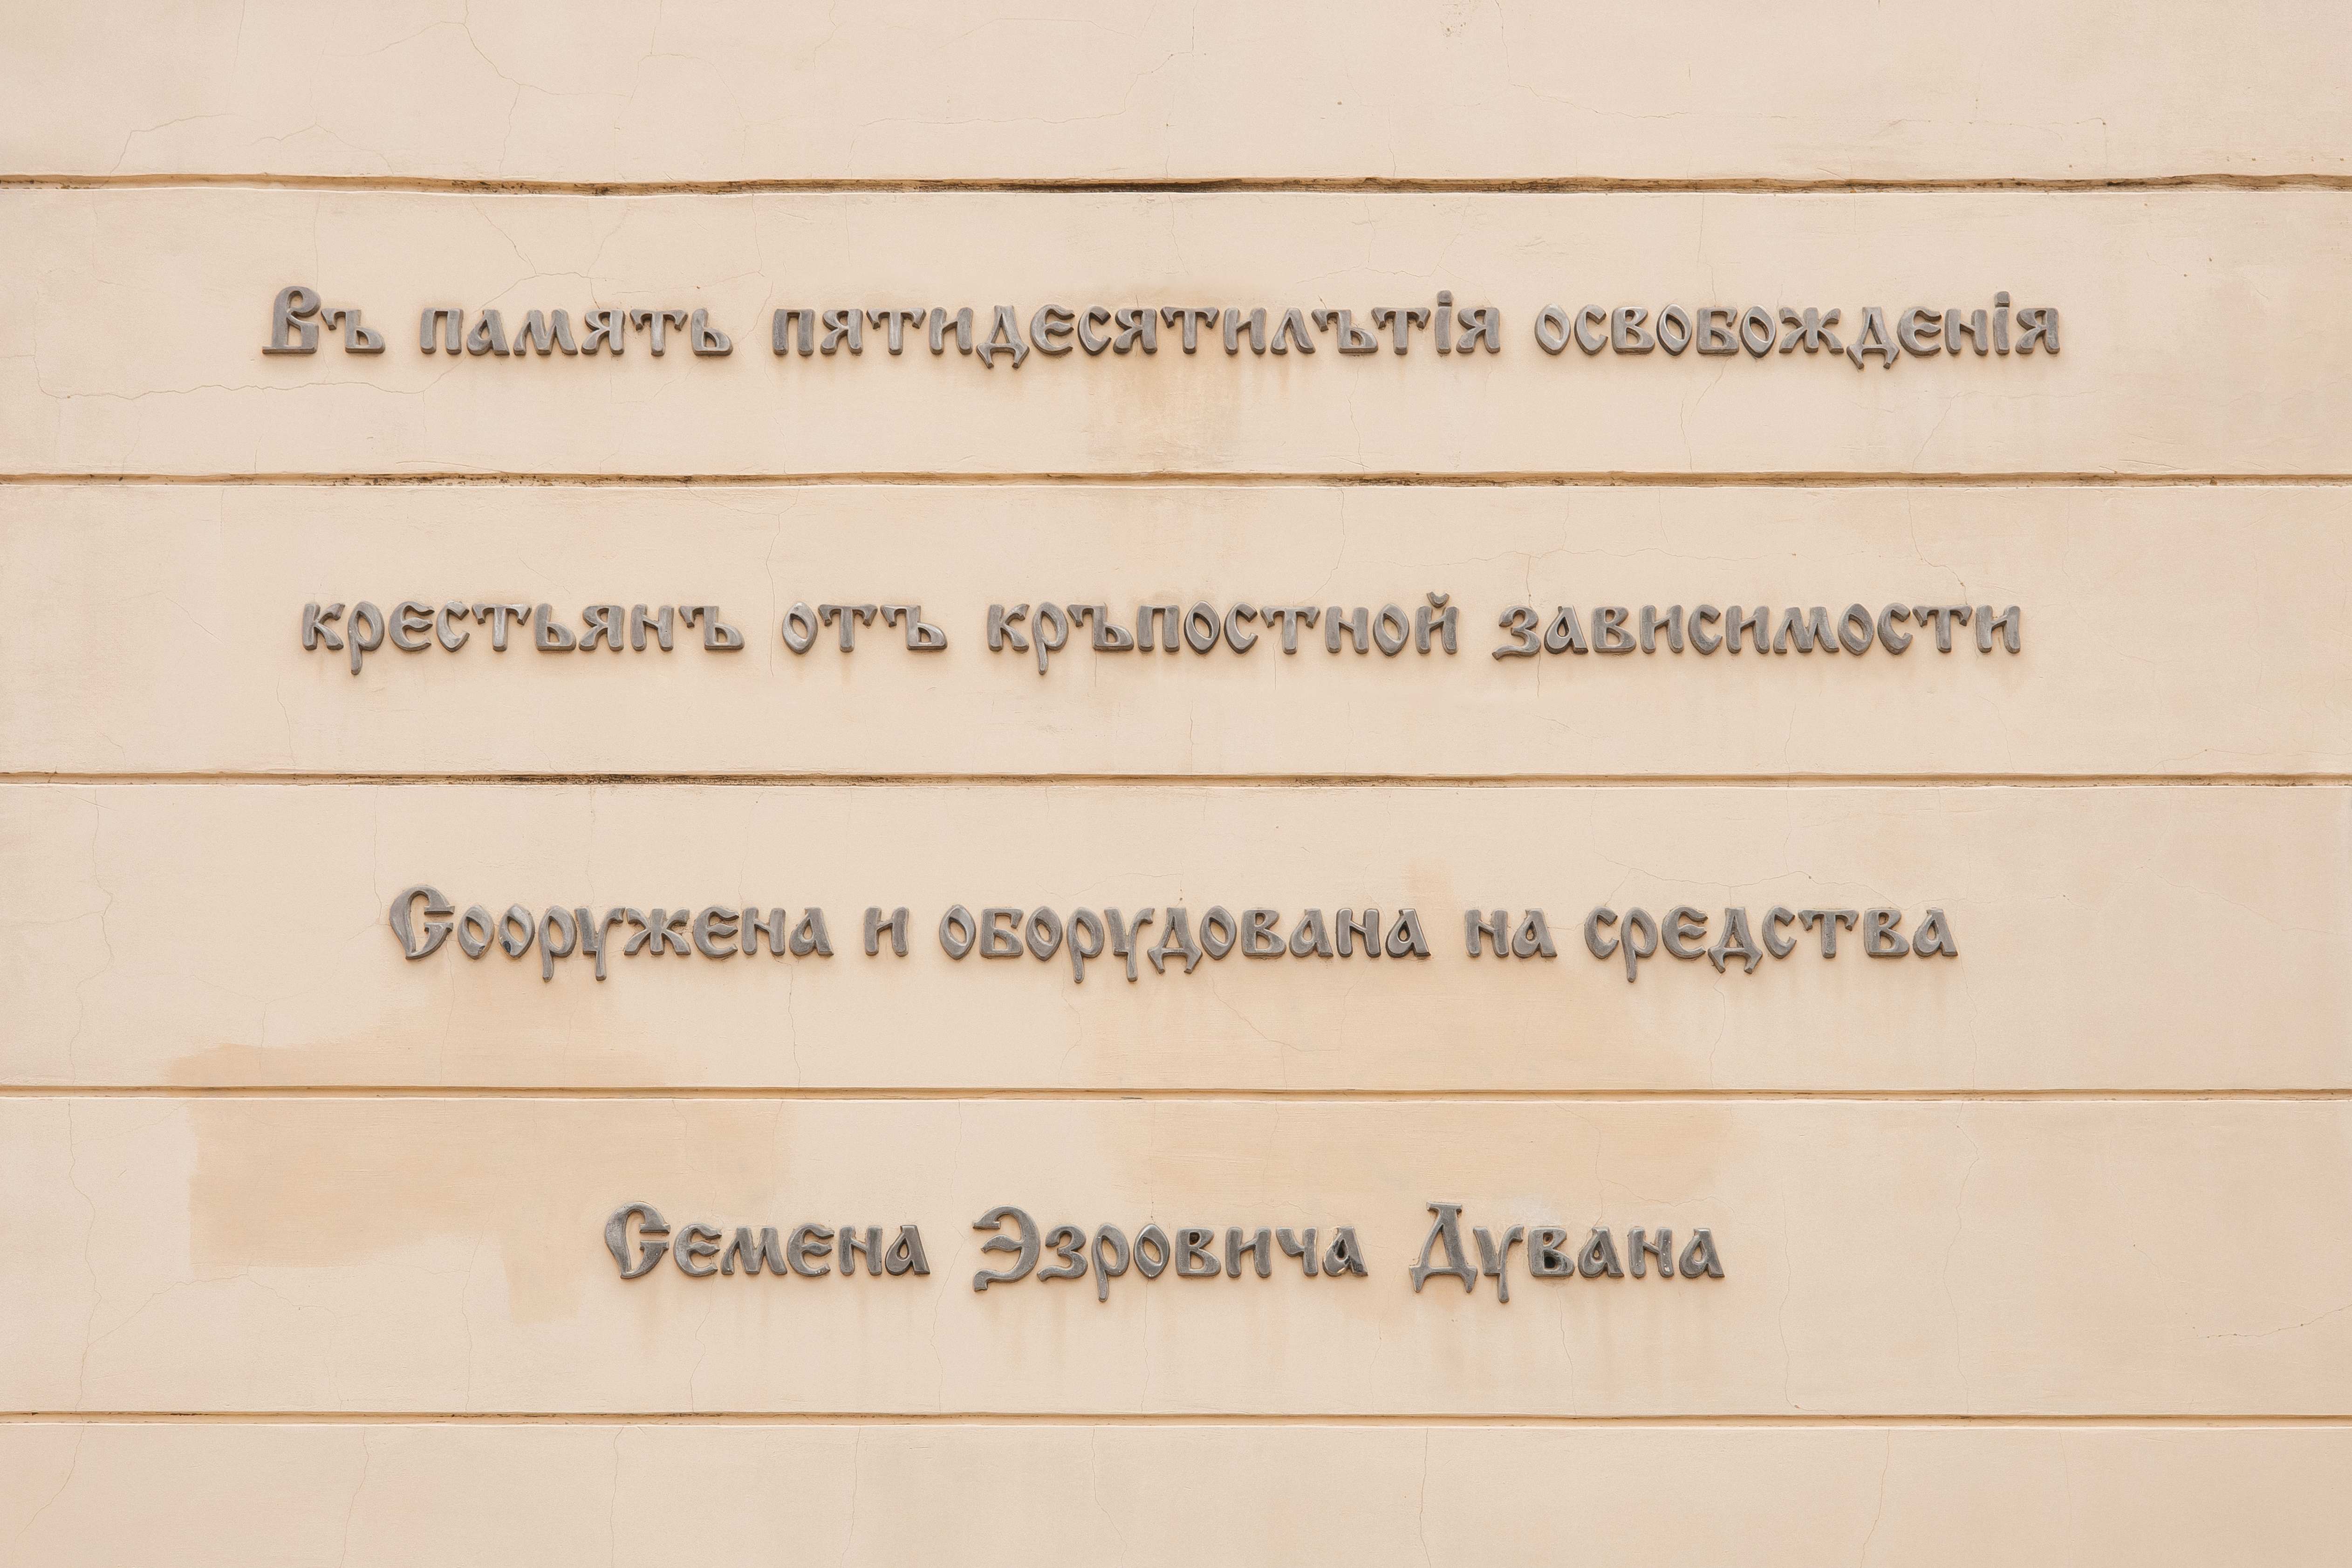 Въ память пятидесятилътія освобожденія
крестьянъ отъ кръпостной зависимости
Сооружена и оборудована на средства
Семена Эзровича Дувана